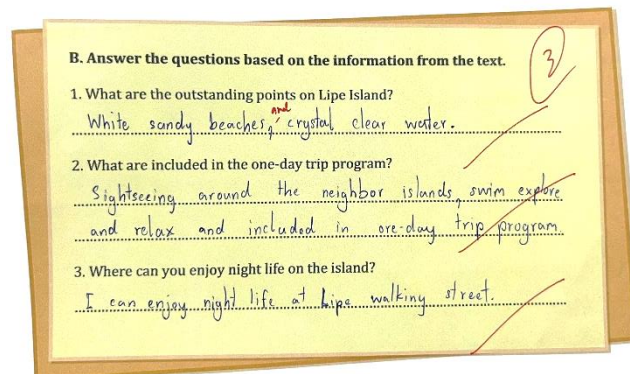 3
B. Answer the questions based on the information from the text.
1. What are the outstanding points on Lipe Island?
and
White sandy beaches, crystal clear water.
2. What are included in the one-day trip program?
Sightseeing around the neighbor islands, swim explore
and relax and included in one-day trip program.
3. Where can you enjoy night life on the island?
I can enjoy night life at Lipe walking street.